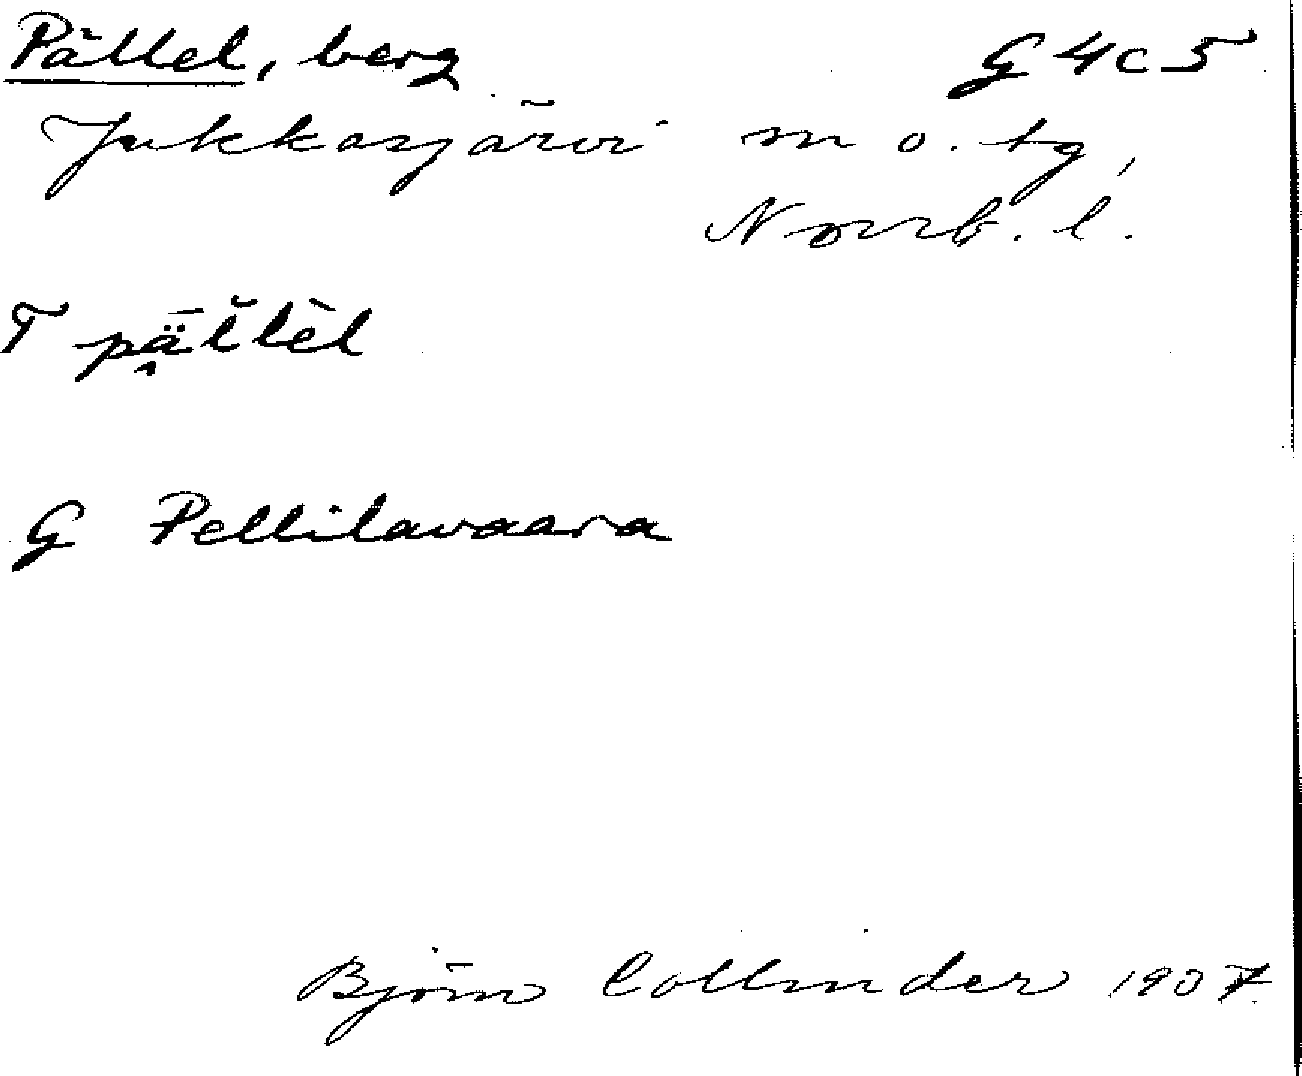 Pällel, berg G 4 c 5
Jukkasjärvi m o. tg,
Norrb. l.
T
G Pellilavaara
Björn Collinder 1907